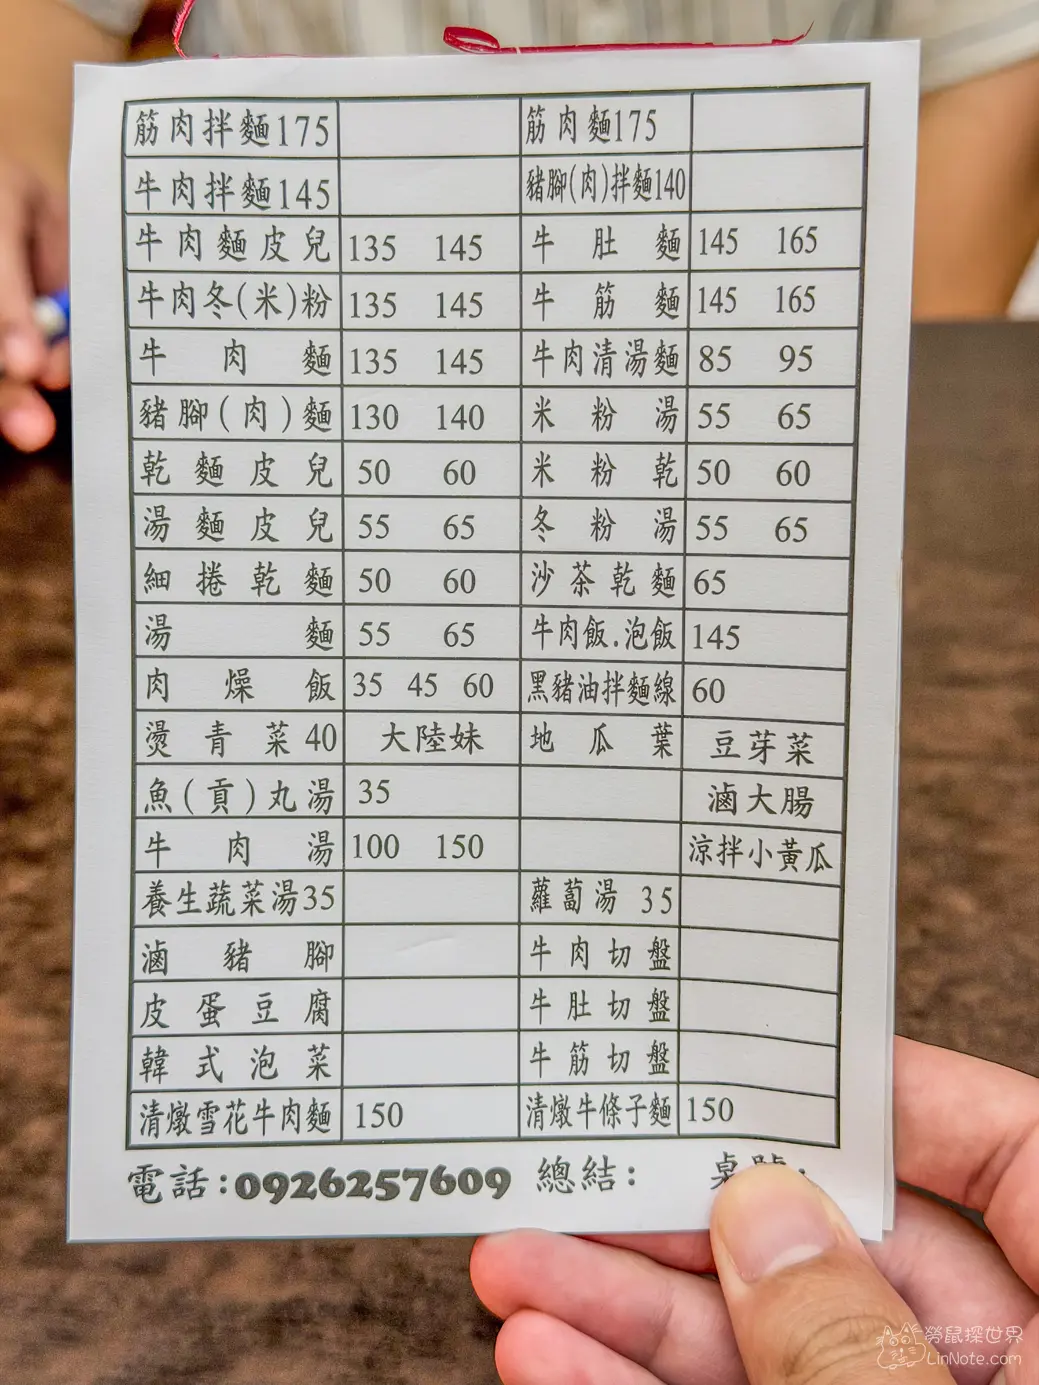 筋肉拌麵175 筋肉麵175
牛肉拌麵145 豬腳(肉)拌麵140
牛肉麵皮兒 135 145 牛肚麵 145 165
牛肉冬(米)粉 135 145 牛筋麵 145 165
牛肉麵 135 145 牛肉清湯麵 85 95
豬腳(肉)麵 130 140 米粉湯 55 65
乾麵皮兒 50 60 米粉乾 50 60
湯麵皮兒 55 65 冬粉湯 55 65
細捲乾麵 50 60 沙茶乾麵 65
湯麵 55 65 牛肉飯.泡飯 145
肉燥飯 35 45 60 黑豬油拌麵線 60
燙青菜40 大陸妹 地瓜葉 豆芽菜
魚(貢)丸湯 35 滷大腸
牛肉湯 100 150 涼拌小黃瓜
養生蔬菜湯35 蘿蔔湯 35
滷豬腳 牛肉切盤
皮蛋豆腐 牛肚切盤
韓式泡菜 牛筋切盤
清燉雪花牛肉麵 150 清燉牛條子麵 150
電話:0926257609 總結: 桌
勞鼠探世界
LinNote.com